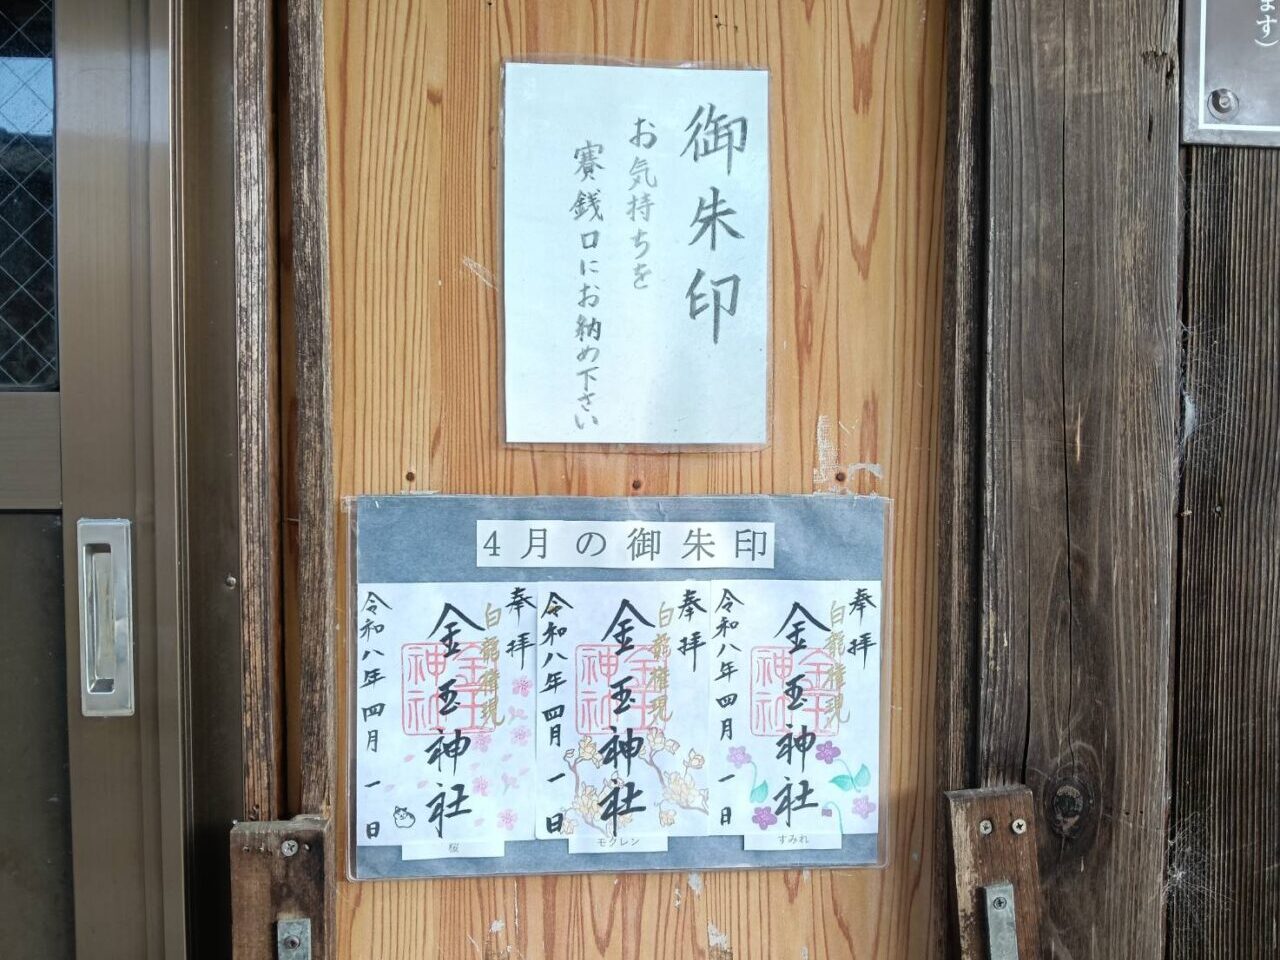 御朱印
お気持ちを
賽銭口にお納め下さい
ます)
4月の御朱印
奉拝
白龍権現
金玉神社
金玉神社
令和八年四月一日
桜
奉拝
白龍権現
金玉神社
金玉神社
令和八年四月一日
モクレン
奉拝
白龍権現
金玉神社
金玉神社
令和八年四月一日
すみれ